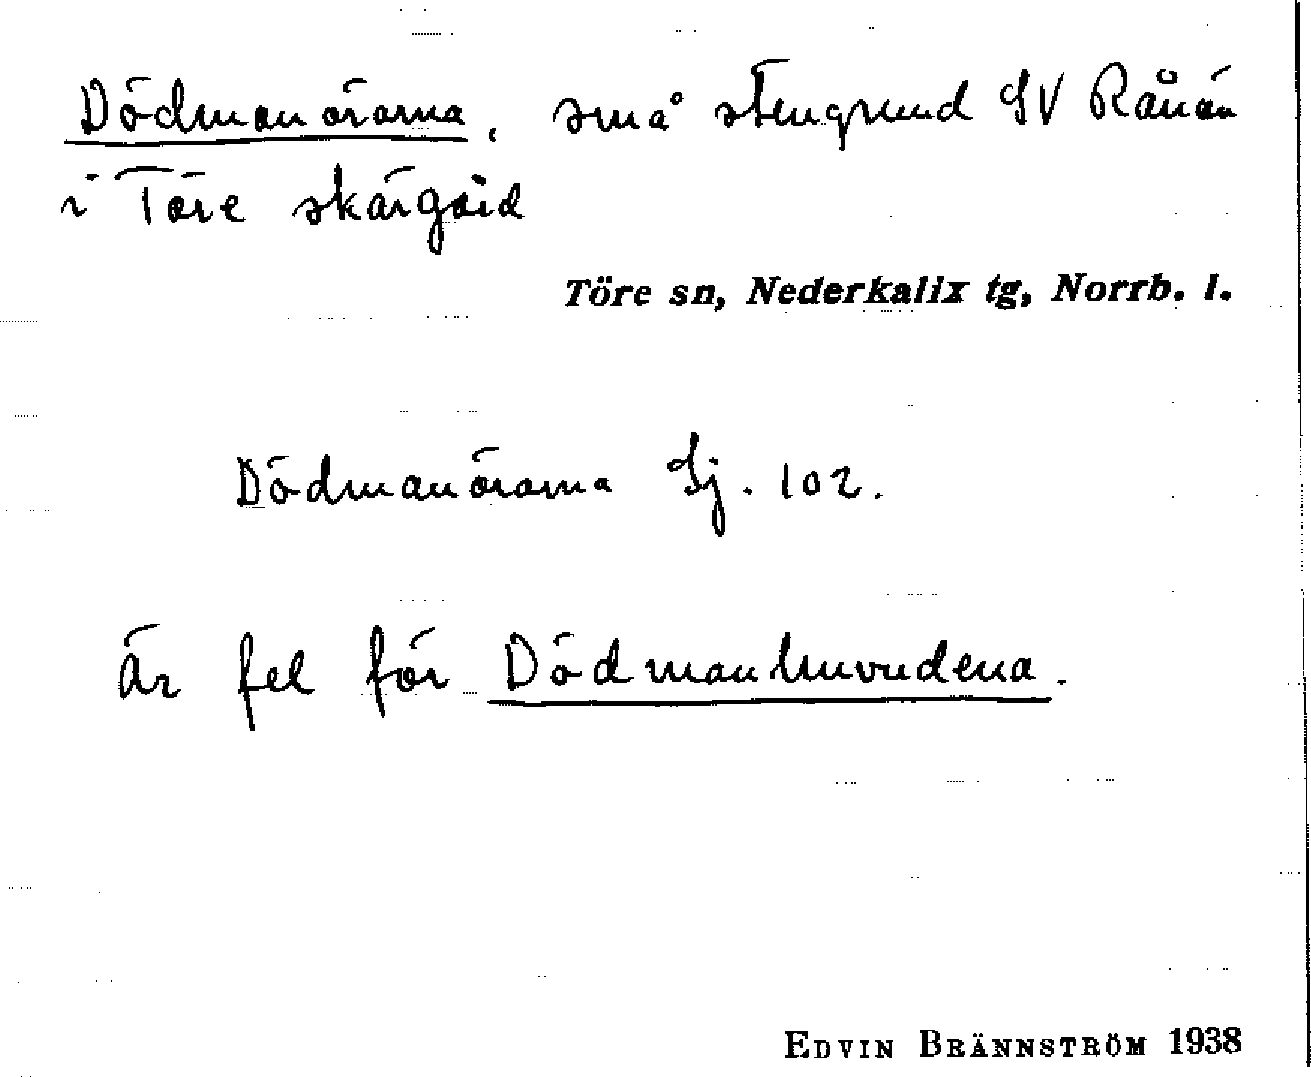 Dödmanörarna, små stengrund SV Rånön
i Töre skärgård
Töre sn, Nederkalix tg, Norrb. l.
Dödmanörarna Sj. 102.
är fel för Dödmanhuvudena.
EDVIN BRÄNNSTRÖM 1938